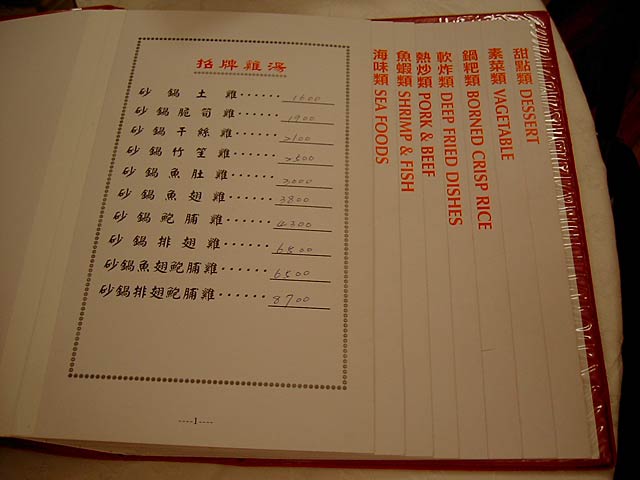 招牌雞湯
砂鍋土雞······1600
砂鍋脆筍雞······1900
砂鍋干絲雞······2100
砂鍋竹笙雞······2500
砂鍋魚肚雞······3000
砂鍋魚翅雞······3800
砂鍋鮑脯雞······4300
砂鍋排翅雞······6800
砂鍋魚翅鮑脯雞······6500
砂鍋排翅鮑脯雞······8700
----1----
海味類 SEA FOODS
魚蝦類 SHRIMP & FISH
熱炒類 PORK & BEEF
軟炸類 DEEP FRIED DISHES
鍋粑類 BORNED CRISP RICE
素菜類 VAGETABLE
甜點類 DESSERT